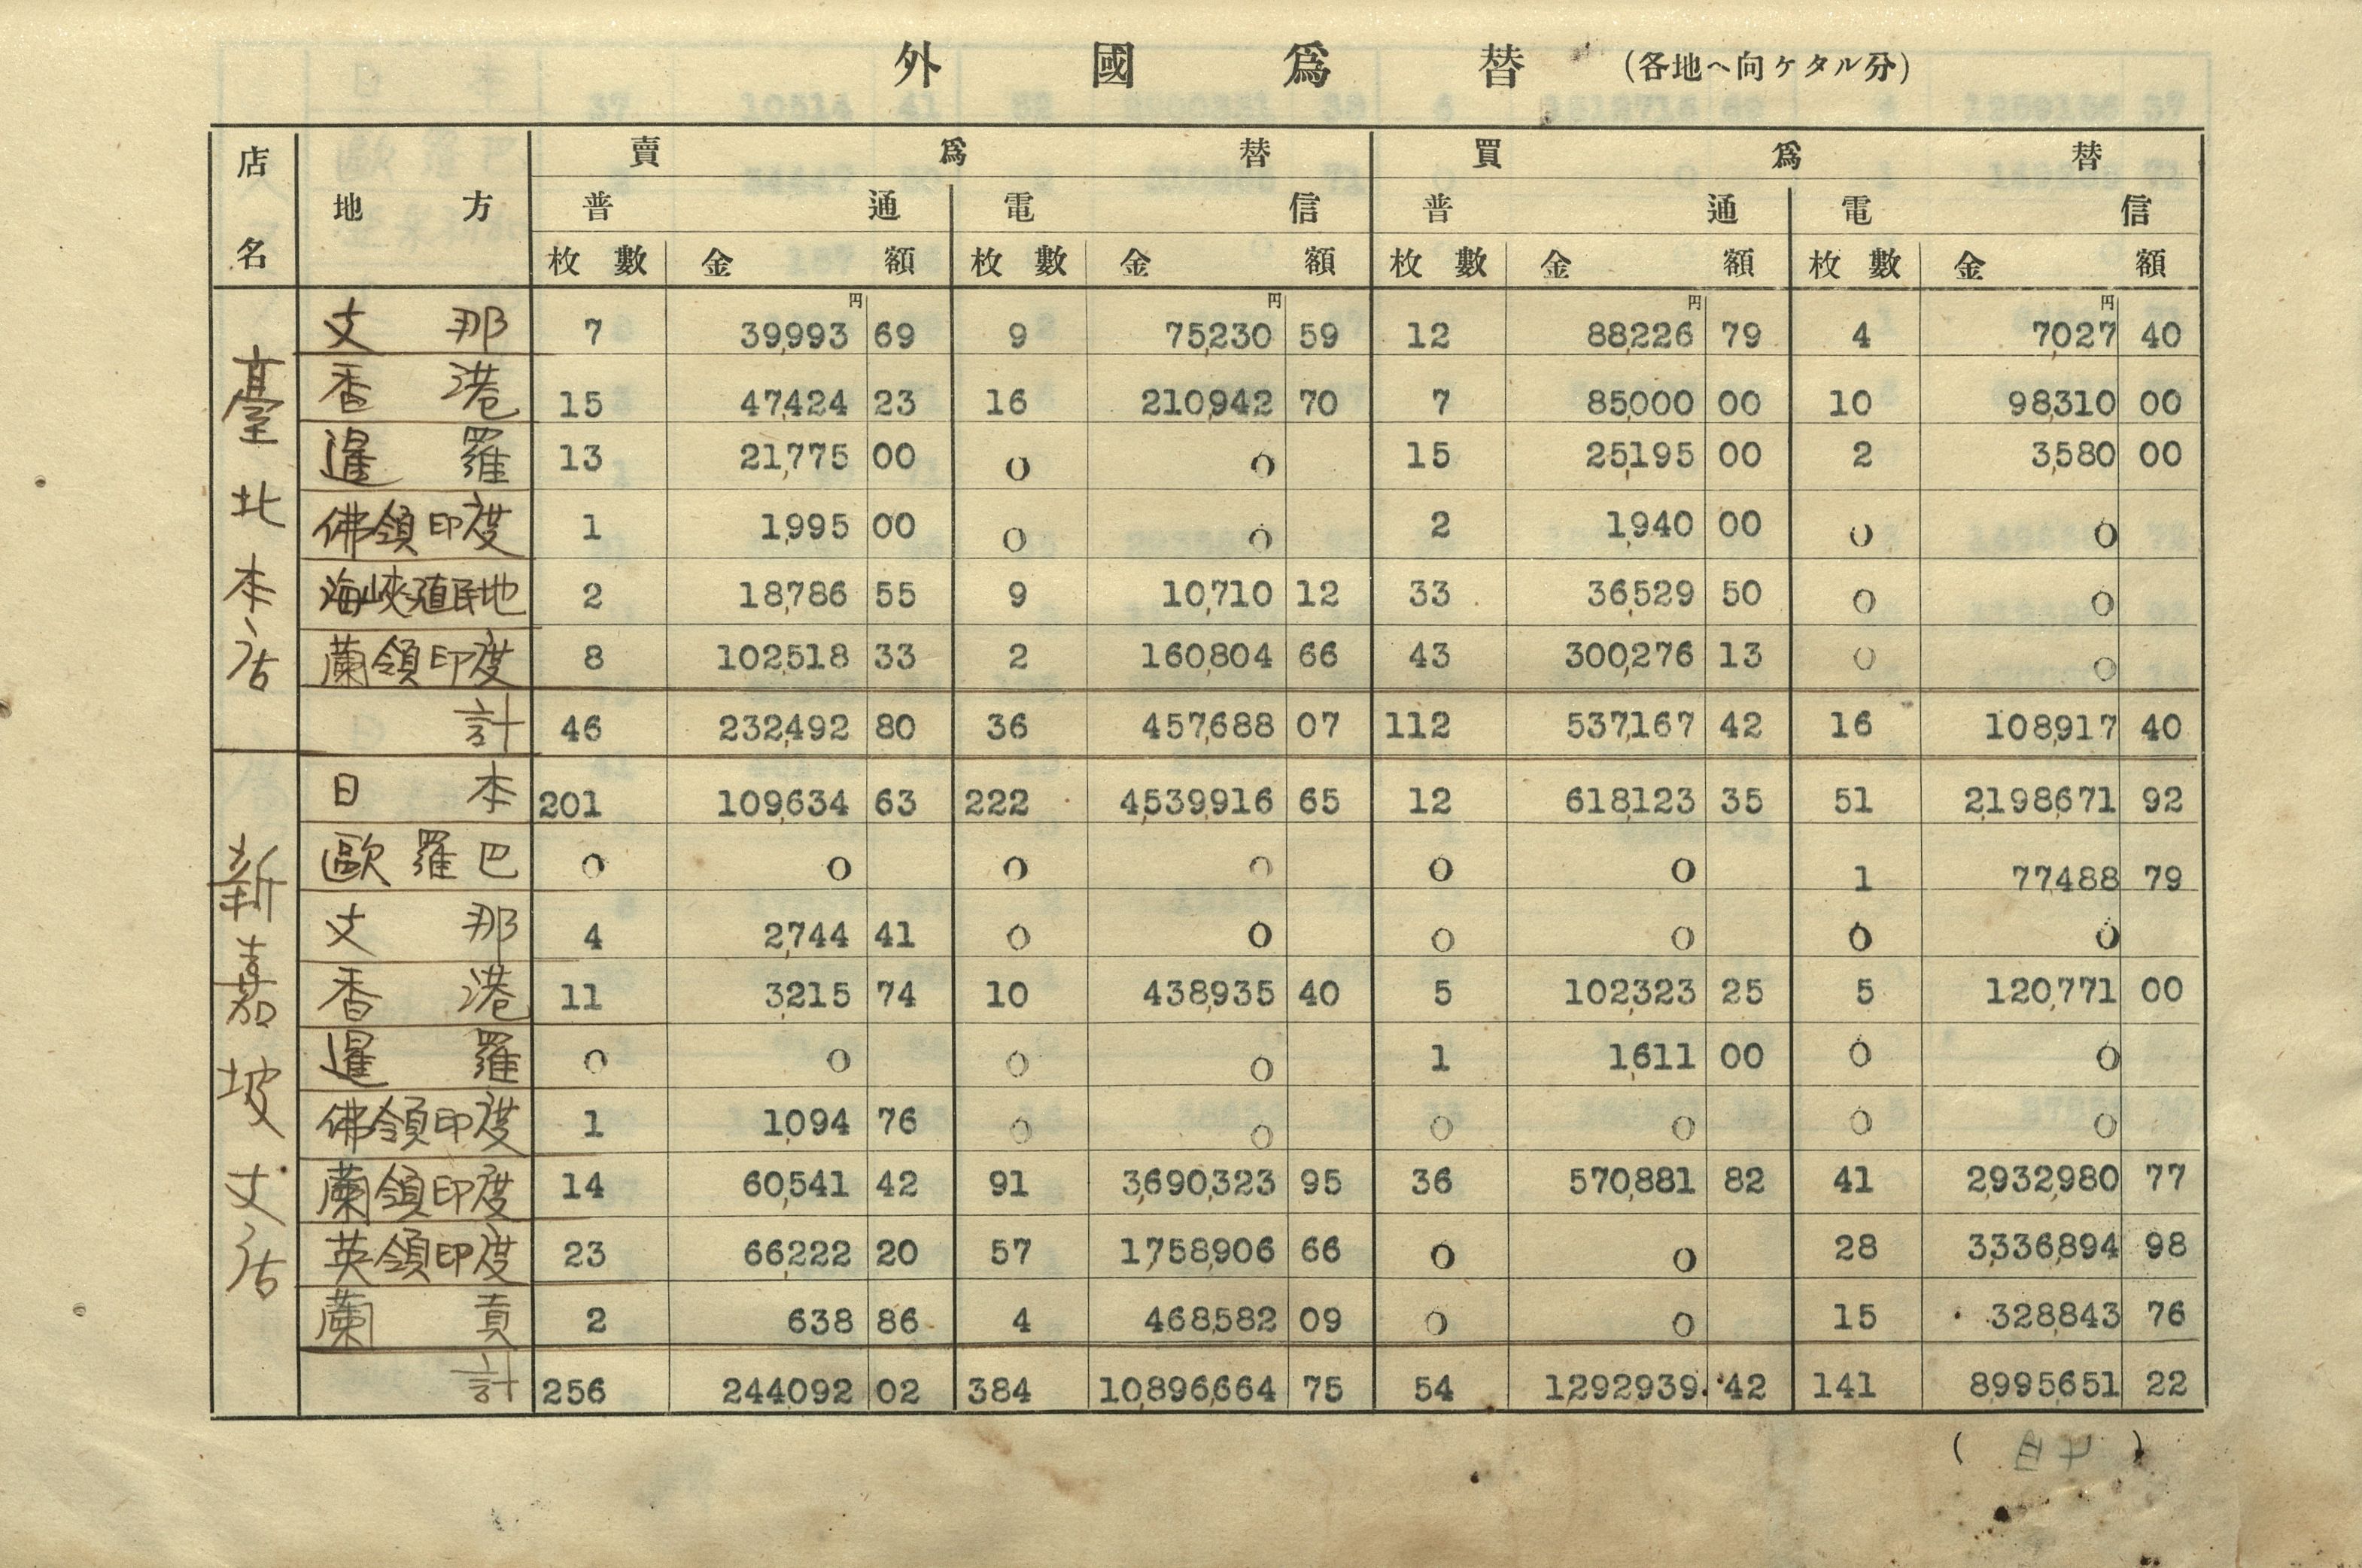 外國爲替 (各地ヘ向ケタル分)
店名 地方 賣爲替 買爲替
普通 電信 普通 電信
枚數 金額 枚數 金額 枚數 金額 枚數 金額
円 円 円 円
臺北本店
支那 7 39,993 69 9 75,230 59 12 88,226 79 4 7,027 40
香港 15 47,424 23 16 210,942 70 7 85,000 00 10 98,310 00
暹羅 13 21,775 00 0 0 15 25,195 00 2 3,580 00
佛領印度 1 1,995 00 0 0 2 1,940 00 0 0
海峽殖民地 2 18,786 55 9 10,710 12 33 36,529 50 0 0
蘭領印度 8 102,518 33 2 160,804 66 43 300,276 13 0 0
計 46 232,492 80 36 457,688 07 112 537,167 42 16 108,917 40
新嘉坡支店
日本 201 109,634 63 222 4,539,916 65 12 618,123 35 51 2,198,671 92
歐羅巴 0 0 0 0 0 0 1 77,488 79
支那 4 2,744 41 0 0 0 0 0 0
香港 11 3,215 74 10 438,935 40 5 102,323 25 5 120,771 00
暹羅 0 0 0 0 1 1,611 00 0 0
佛領印度 1 1,094 76 0 0 0 0 0 0
蘭領印度 14 60,541 42 91 3,690,323 95 36 570,881 82 41 2,932,980 77
英領印度 23 66,222 20 57 1,758,906 66 0 0 28 3,336,894 98
蘭貢 2 638 86 4 468,582 09 0 0 15 328,843 76
計 256 244092 02 384 10,896,664 75 54 1,292,939 42 141 8,995,651 22